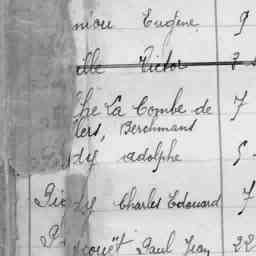 niou Eugène 9
ille Victor
che La Combe de 7
lers, Berchmans
dy Adolphe 5
dy Charles Edouard 7
couët Paul Jean 22